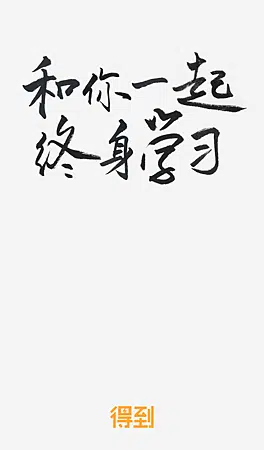 和你一起
终身学习
得到